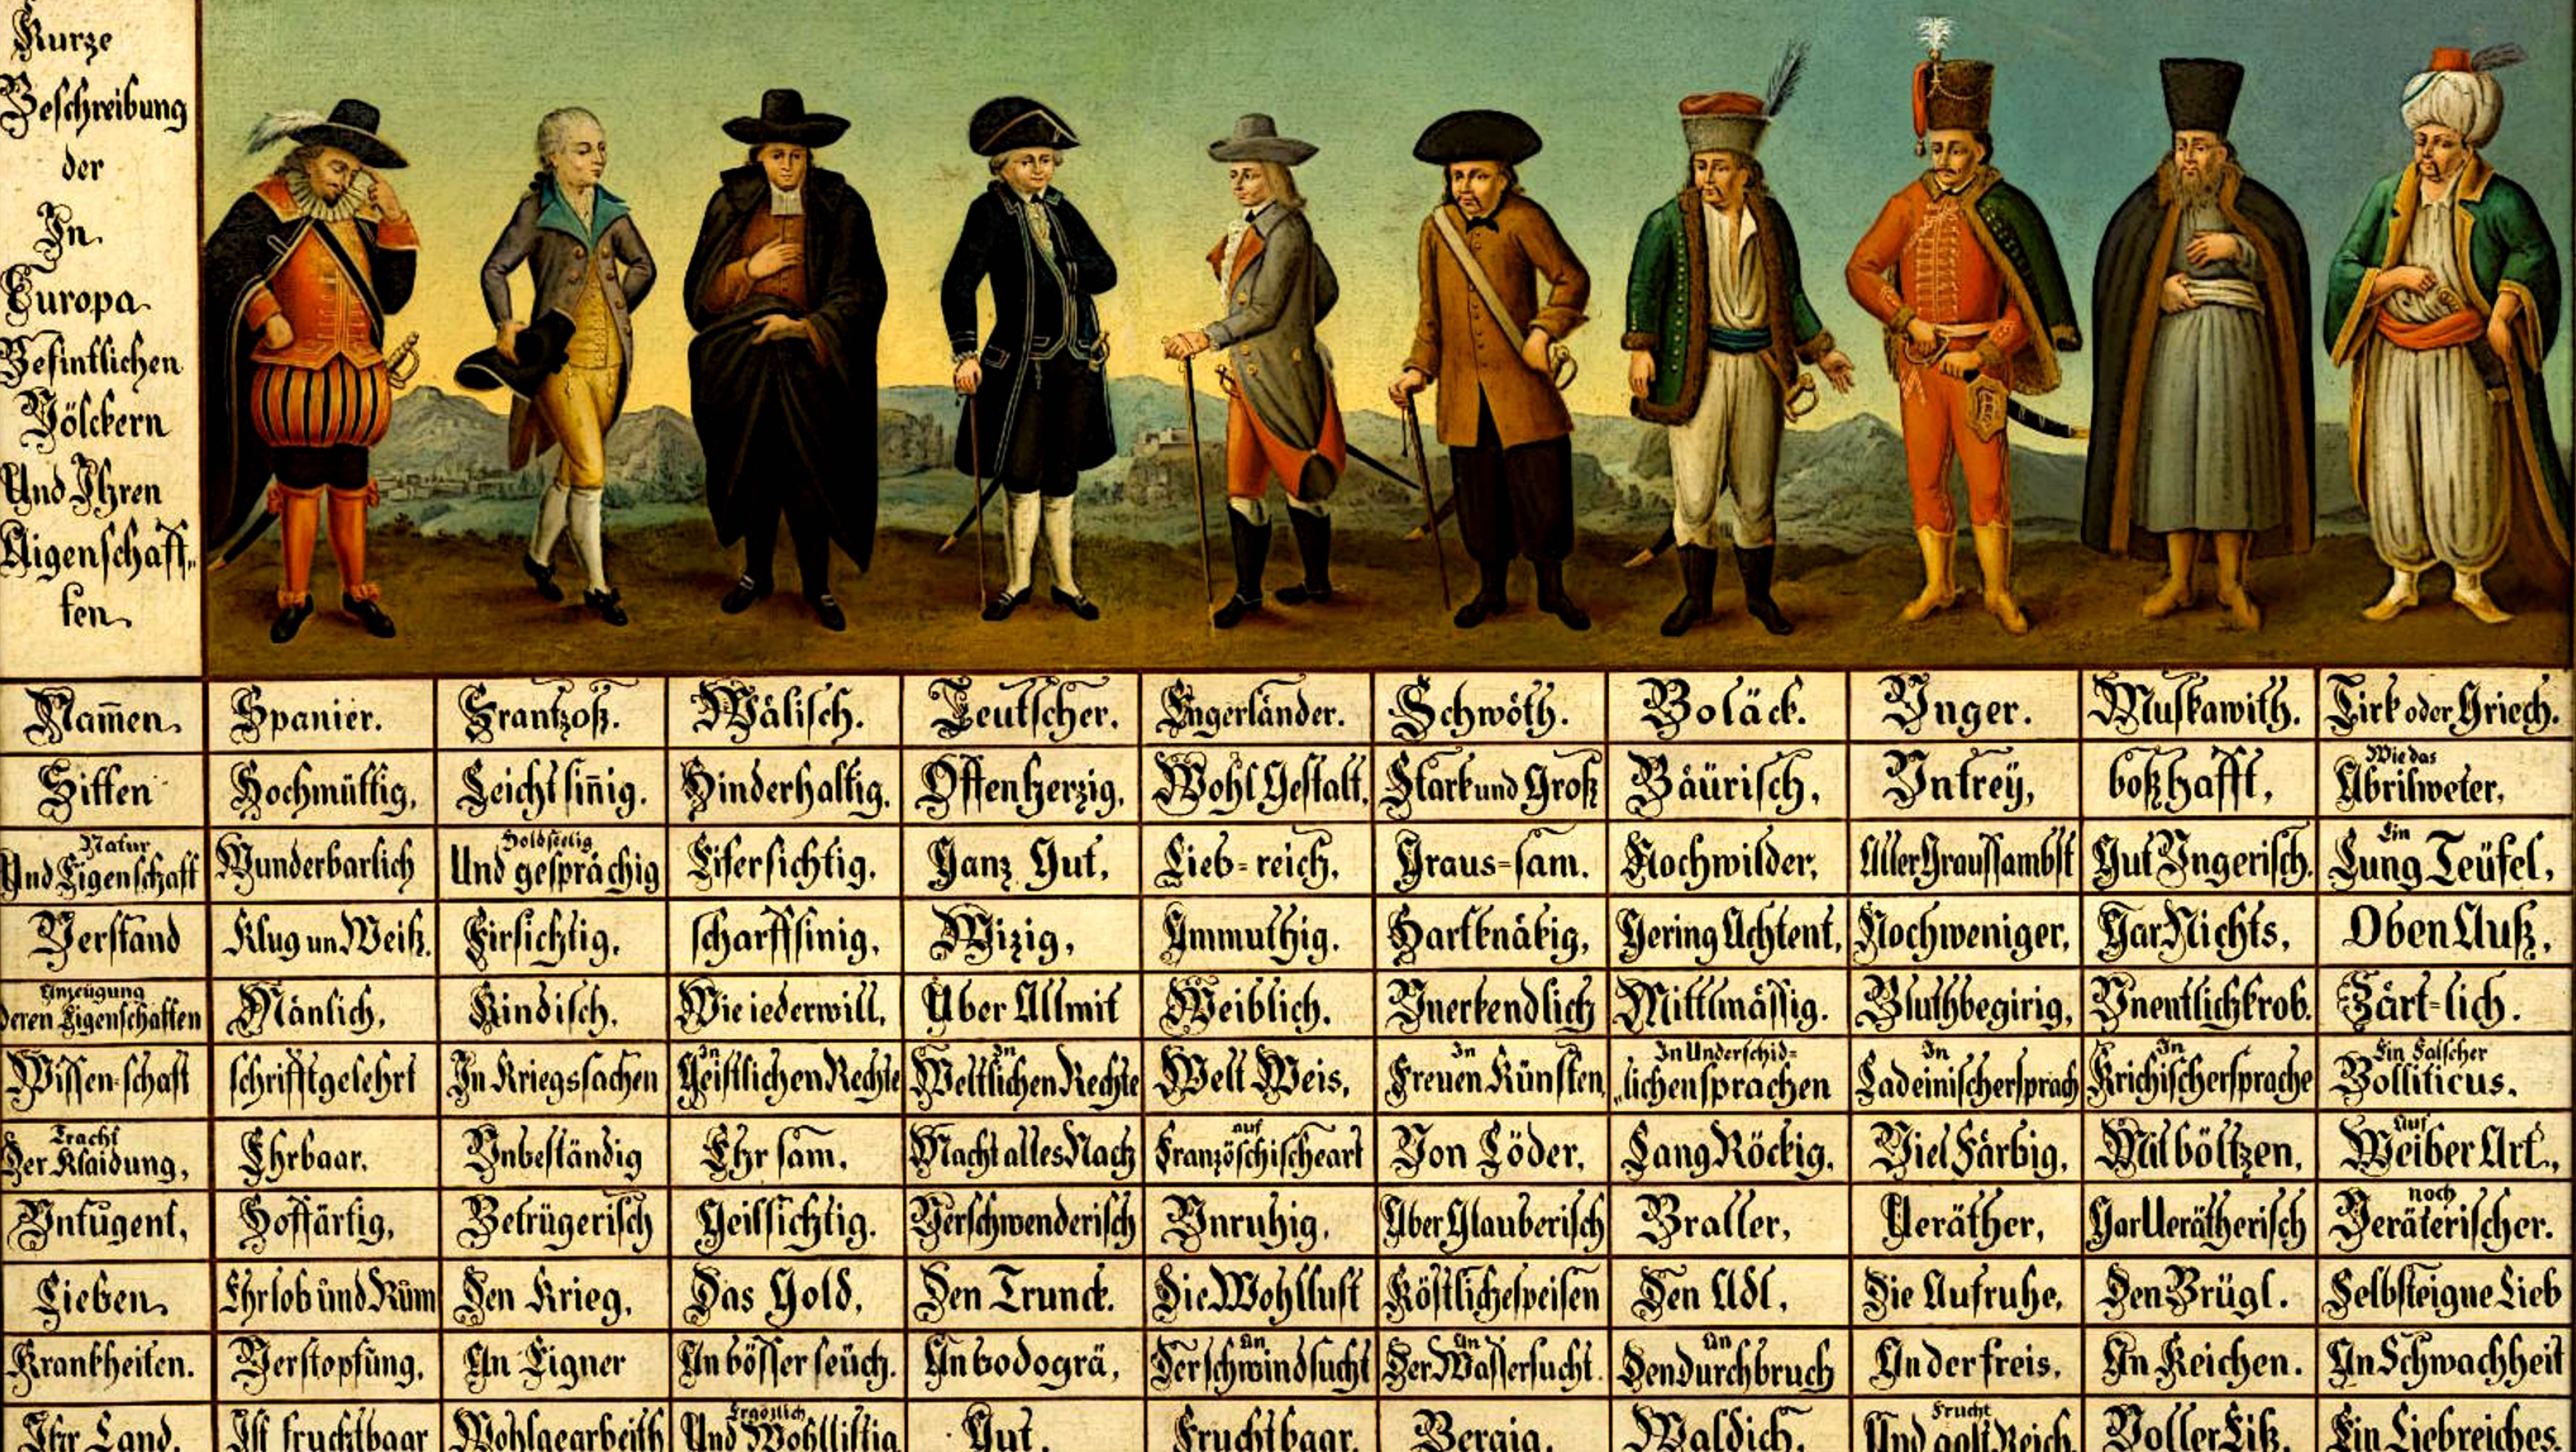 Kurze
Beschreibung
der
In
Europa
Befintlichen
Völckern
Und Ihren
Aigenschaff„
ten.
Nam̅en. Spanier. Frantzoß. Wälisch. Teutscher. Engerländer. Schwöth. Boläck. Vnger. Muskawith. Tirk oder Griech.
Sitten Hochmüttig, Leicht sin̅ig. Hinderhaltig. Offenherzig, Wohl Gestalt, Stark und Groß Bäürisch, Vntreÿ, boßhafft, Wie das Abrilweter,
Natur Und Eigenschaft Wunderbarlich Holdseelig Und gesprächig Eifersichtig, Ganz Gut, Lieb=reich, Graus=sam. Nochwilder, Aller Graussambst Gut Vngerisch. Ein Lung Teüfel,
Verstand Klug un Weiß. Firsichtig, scharffsinig, Wizig, Ammuthig. Hartknäkig, Gering Achtent, Nochweniger, Gar Nichts, Oben Auß,
Anzeügung deren Eigenschaften Mänlich, Kindisch, Wie iederwill, Über Allmit Weiblich. Vnerkendlich Mittlmässig. Bluthbegirig, Vnentlichkrob. Zärt=lich.
Wissen=schaft schrifftgelehrt In Kriegssachen In Geistlichen Rechte In Weltlichen Rechte Welt Weis, In Freuen Künsten, In Underschid= „lichen sprachen In Ladeinischersprach In Krichischersprache Ein Falscher Bolliticus.
Tracht Der Klaidung, Ehrbaar. Vnbeständig Ehr sam, Macht alles Nach auf Französchischeart Von Löder, Lang Röckig, Viel Färbig, Mit böltzen, Auf Weiber Art.,
Vntugent, Hoffärtig, Betrügerisch Geilsichtig. Verschwenderisch Vnruhig, Aber Glauberisch Braller, Veräther, Gar Verätherisch noch Veräterischer.
Lieben, Ehrlob ünd Rüm Den Krieg, Das Gold, Den Trunck. Die Wohllust Köstlichespeisen Den Adl, Die Aufruhe, Den Brügl. Selbsteigne Lieb
Krankheiten. Verstopfung, An Eigner An bösser seüch. An bodogrä, An Der schwindsucht An Der Wassersucht. An Den durchbruch An der freis. An Keichen. An Schwachheit
Ihr Land. Ist fruchtbaar Wohlgearbeith Ergözlich Und Wohllistig Gut. Fruchtbaar. Bergig. Waldich. Frucht Und golt Reich. Voller Eiß. Ein Liebreiches